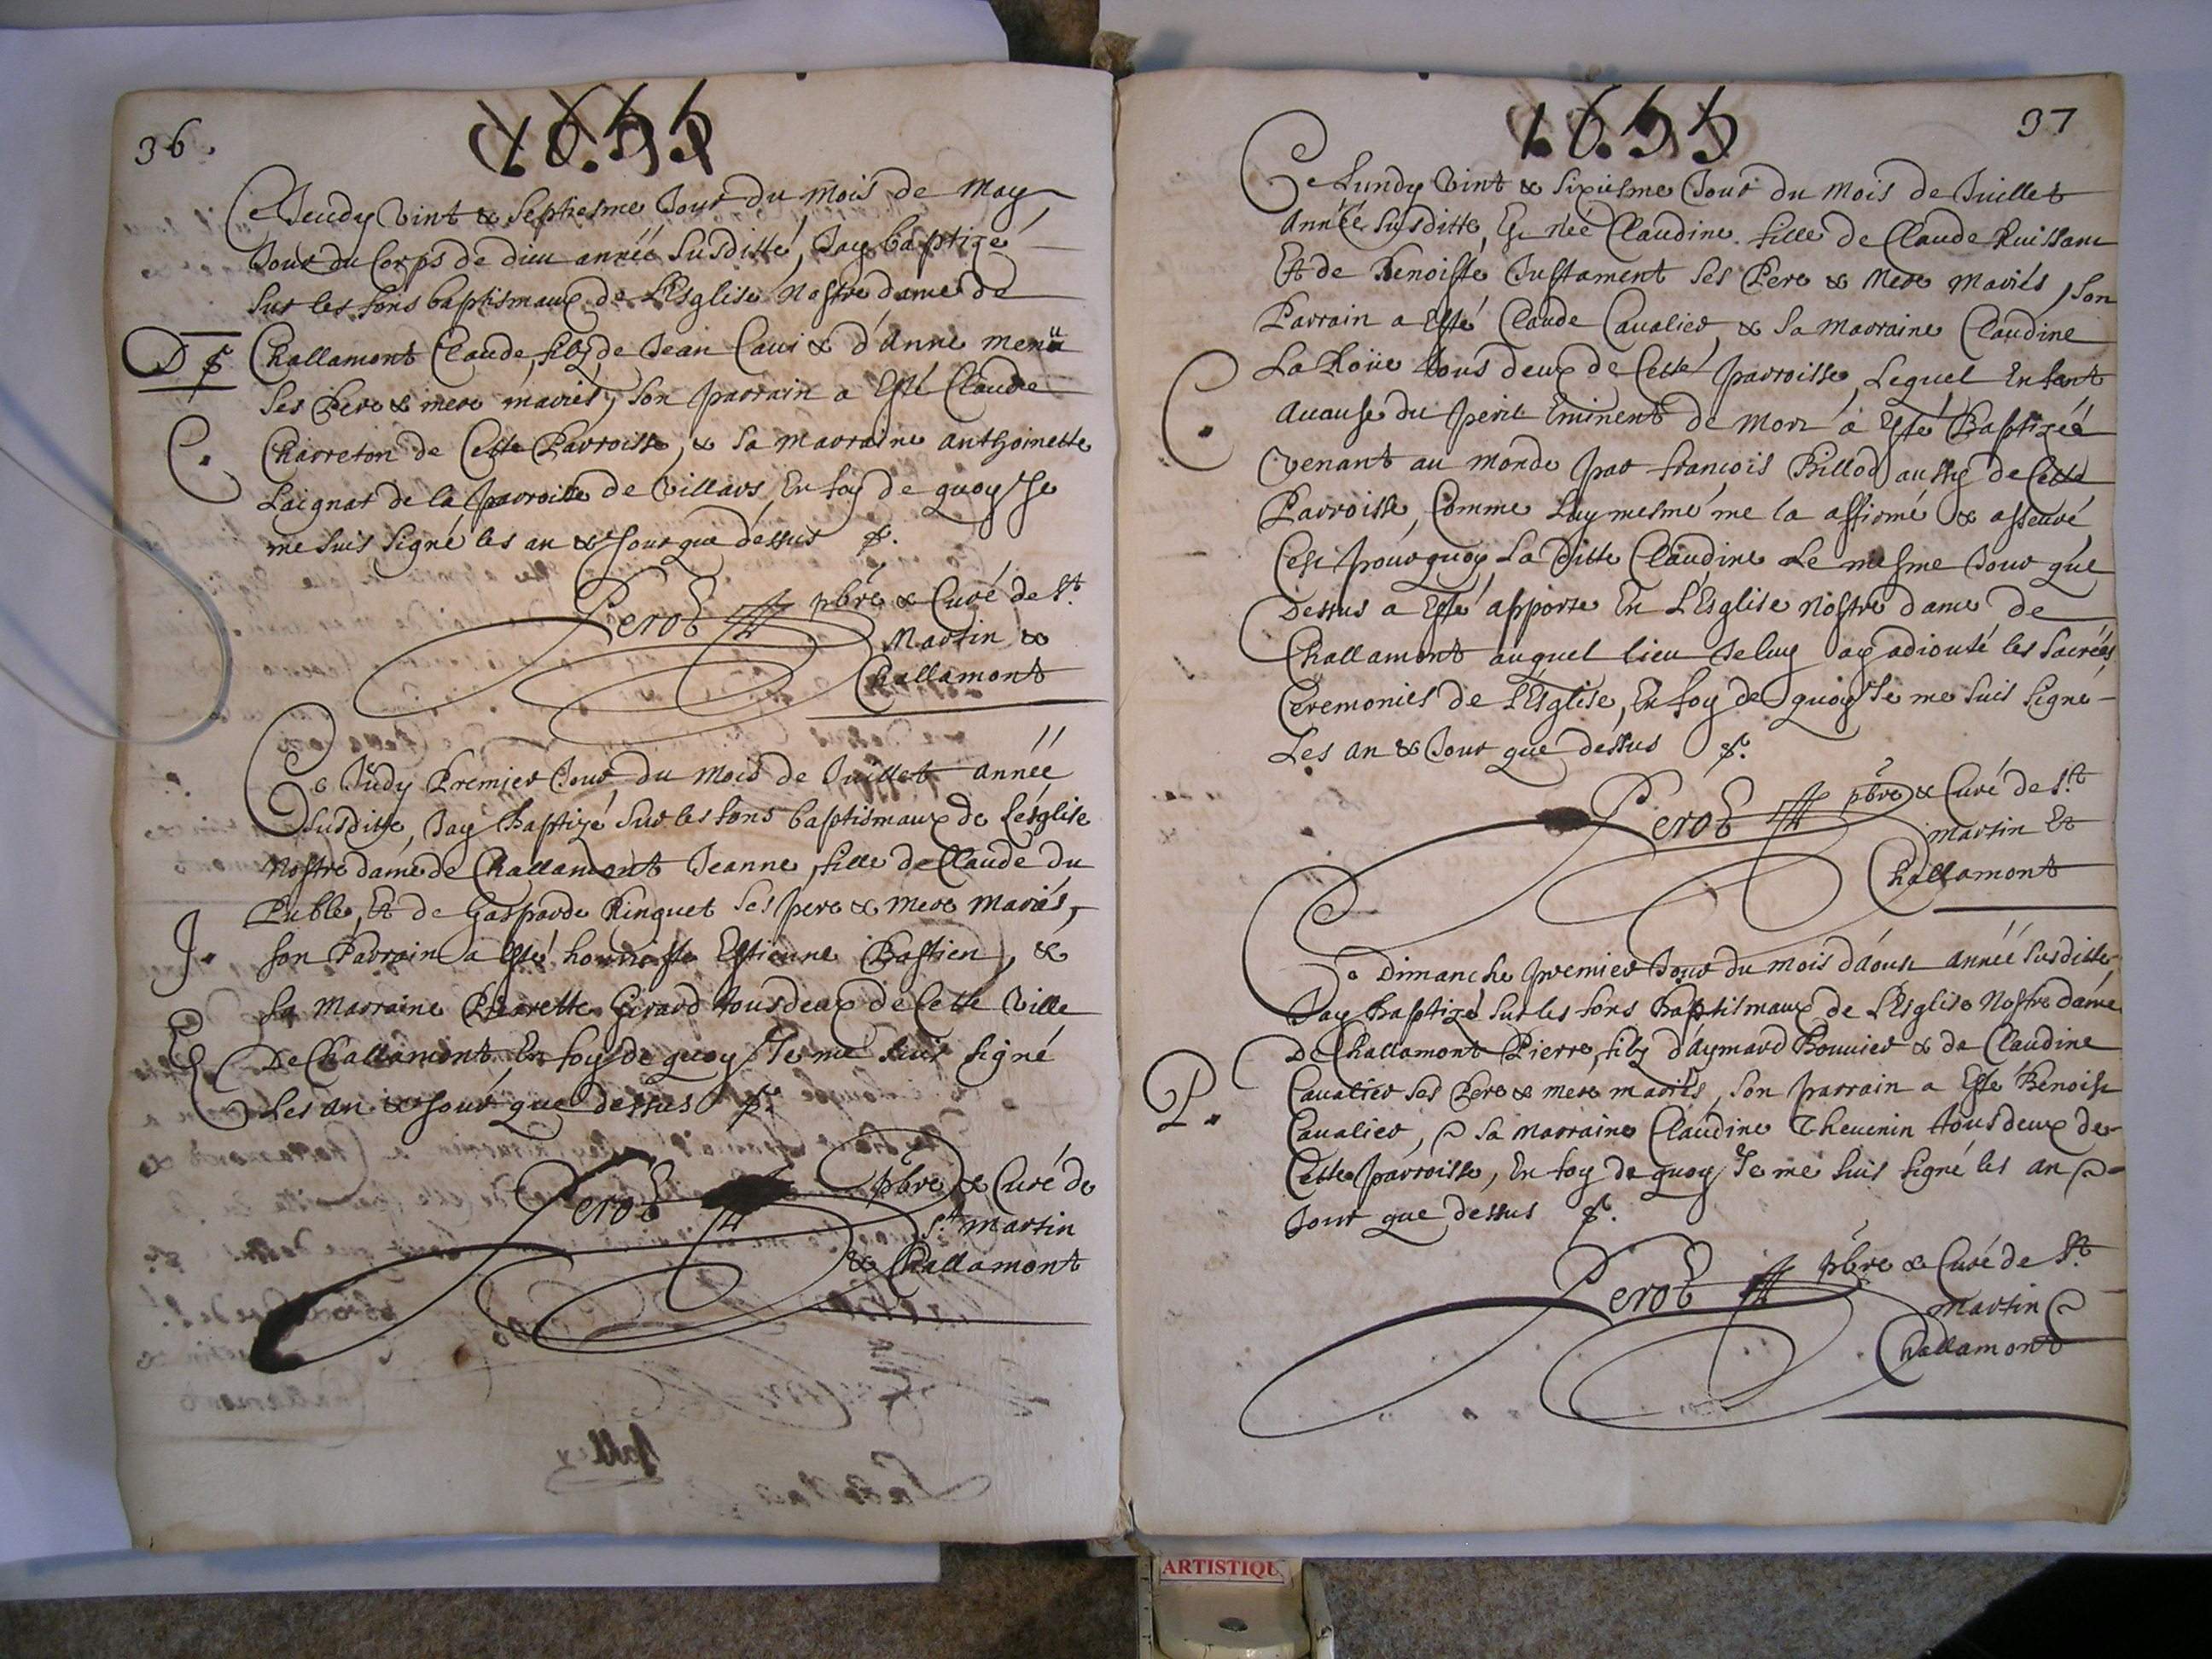 36.
1655
Ce Jeudy Vint & Septiesme Jour du mois de May
Jour du Corps de dieu année Susditte, Jay baptizé
Sur les fons baptismaux de L'Esglise Nostre dame de
Challamont Claude, filz de Jean Caui & d'Anne menü
Ses Pere & mere mariés, Son parrain a Esté Claude
C.
Charreton de Cette Parroisse, & Sa marraine anthoinette
Laignat de la parroisse de Villars En foy de quoy Je
me Suis Signé les an & Jour que dessus
Perot pbre & Curé de St
Martin &
Challamont
Ce Judy Premier Jour du mois de Juillet année
Susditte, Jay Baptizé Sur les fons baptismaux de L'ésglise
Nostre dame de Challamont Jeanne, fille de Claude du
Puble, Et de Gasparde Ringuet Ses pere & mere mariés,
J.
Son Parrain a Esté Estienne Bastien, &
Sa Marraine Pierrette Girard tous deux de Cette Ville
De Challamont En foy de quoy Je me Suis Signé
Les an & Jour que dessus
Perot pbre & Curé de
St Martin
& Challamont
37
1655
Ce Lundy Vint & Sixiesme Jour du Mois de Juillet
Année Susditte, Est née Claudine fille de Claude Ruissam
Et de Benoiste Justament Ses Pere & Mere Mariés, Son
Parrain a Esté Claude Caualier & Sa Marraine Claudine
La Roüe tous deux de Cette parroisse, Lequel Enfant
C.
Acause du peril Eminent de Mort a Esté Baptizée
Venant au Monde par francois Billod aussy de Cette
Parroisse, Comme Luy mesme me la affirmé & asseuré
Cest pourquoy La Ditte Claudine Le mesme Jour que
Dessus a Esté apporte En L'Esglise Nostre dame de
Challamont auquel lieu Je luy ay adiouté les Sacréés
Ceremonies de L'Esglise, En foy de quoy Je me Suis Signé
Les an & Jour que dessus
Perot pbre & Curé de St
Martin Et
Challamont
Ce Dimanche premier Jour du mois d'aoust année Susditte
Jay Baptizé Sur les fons Baptismaux de L'Esglise Nostre dame
De Challamont Pierre, filz d'Aymard Bouuier & de Claudine
P.
Caualier Ses Pere & mere mariés, Son parrain a Esté Benoist
Caualier, & Sa Marraine Claudine Theuenin tous deux de
Cette parroisse, En foy de quoy Je me Suis Signé les an &
Jour que dessus
Perot pbre & Curé de St
Martin &
Challamont
ARTISTIQU